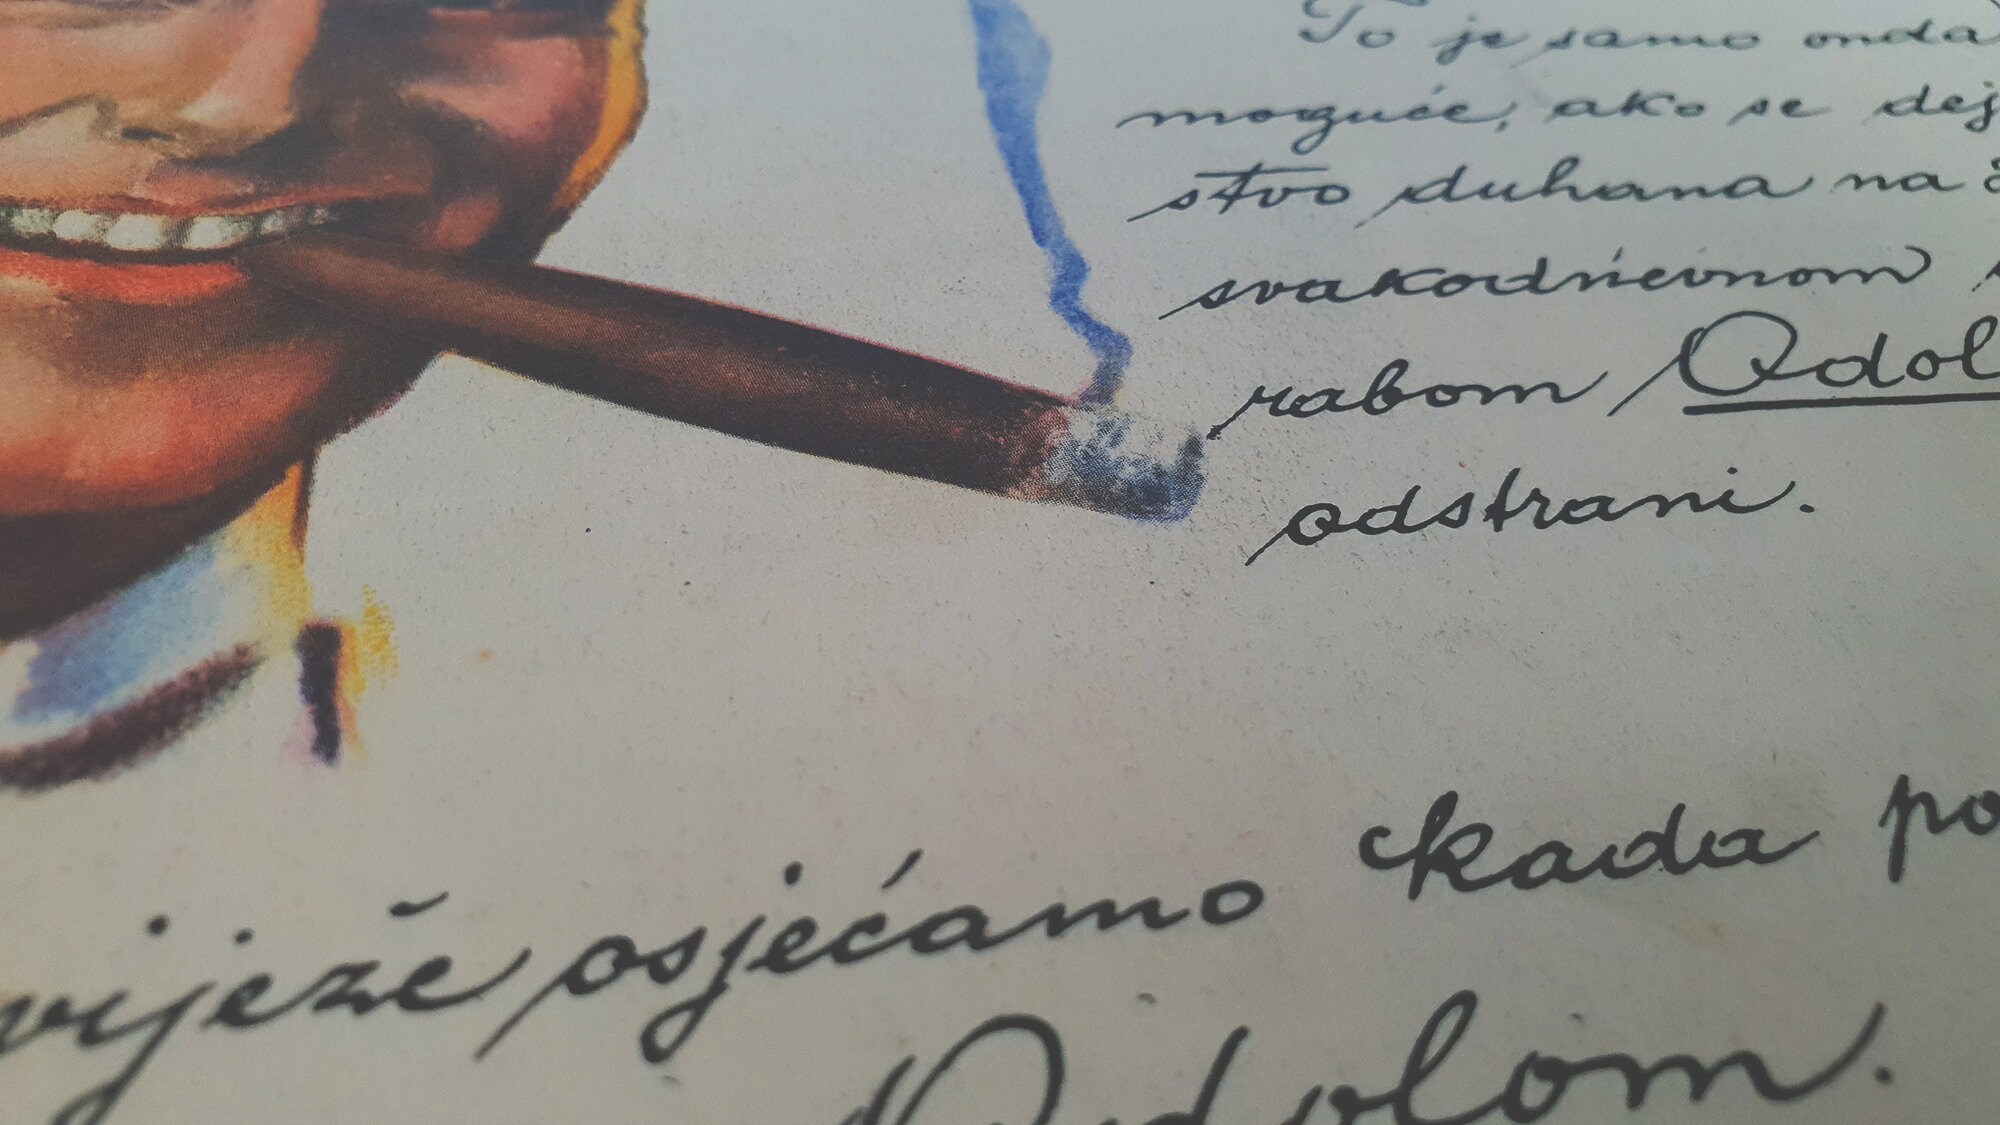 To je samo onda
moguće, ako se dej
stvo duhana na
svakodnevnom
rabom Odol
odstrani.
vježe osjećamo kada po
Odolom.